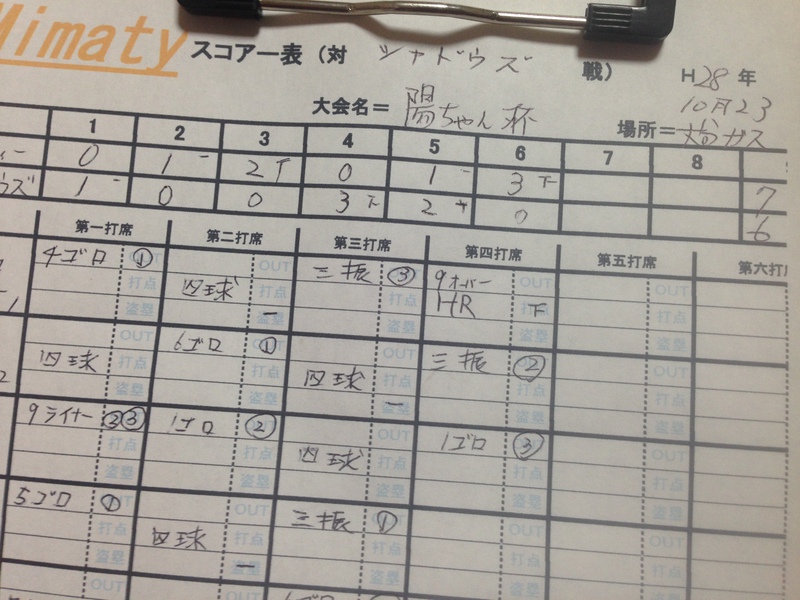 Mimaty スコアー表 (対 シャドウズ 戦)
H28 年
10月23
大会名= 陽ちゃん杯 場所=
1 2 3 4 5 6 7 8
ィー 0 1 一 2 T 0 1 一 3 下 7
ウズ 1 一 0 0 3 下 2 T 0 6
第一打席 第二打席 第三打席 第四打席 第五打席 第六打席
4ゴロ ① OUT 三振 ③ 9オーバー OUT
打点 四球 打点 打点 HR 下 打点
盗塁 一 盗塁 盗塁 盗塁
OUT 6ゴロ ① OUT 三振 ② OUT
四球 打点 打点 四球 打点 打点 打点
盗塁 盗塁 一 盗塁 盗塁 盗塁
9ライナー ②③ 1ゴロ ② OUT 1ゴロ ③ OUT
打点 打点 四球 打点 打点 打点
盗塁 盗塁 盗塁 盗塁 盗塁
5ゴロ ① OUT 三振 ① OUT OUT
打点 四球 打点 打点 打点 打点
盗塁 一 盗塁 盗塁 盗塁 盗塁
OUT OUT ゴロ OUT OUT